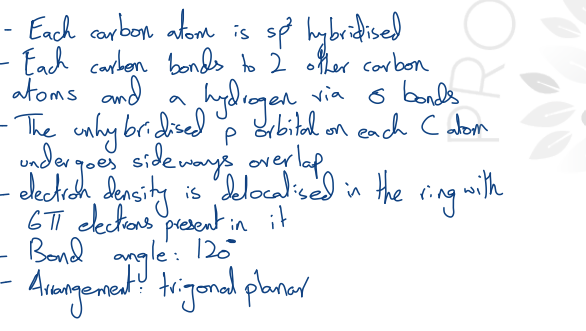 - Each carbon atom is sp² hybridised
- Each carbon bonds to 2 other carbon
atoms and a hydrogen via σ bonds
- The unhybridised p orbital on each C atom
undergoes sideways overlap
- electron density is delocalised in the ring with
6π electrons present in it
- Bond angle: 120°
- Arrangement: trigonal planar
PRO